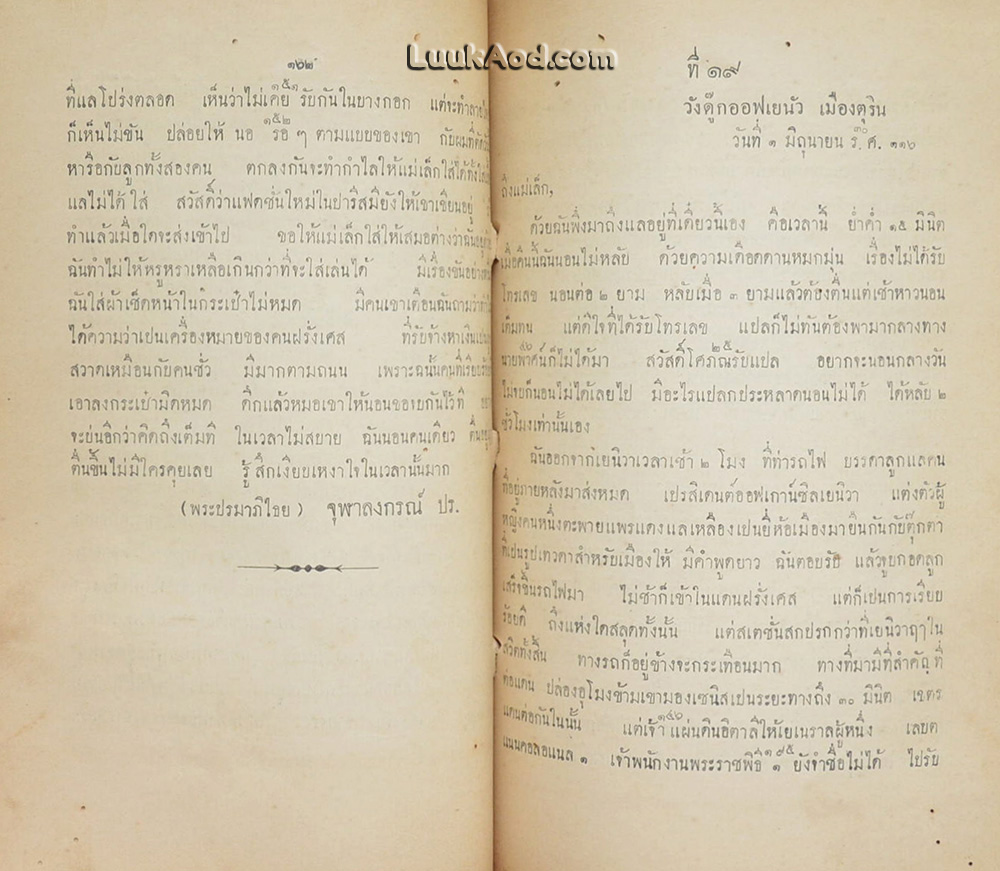 LuukAod.com
๑๖๒
ที่แลโปร่งตลอด เห็นว่าไม่เคย๑๕๑ รับกันในบางกอก แต่จะทำลาย
ก็เห็นไม่ขัน ปล่อยให้ นอ ๑๕๒ รอ ๆ ตามแบบของเขา กับผมที่ตัด
หารือกับลูกทั้งสองคน ตกลงกันจะทำกำไลให้แม่เล็กใส่ได้ทั้ง
แลไม่ได้ใส่ สวัสดิ์ว่าแฟดชั่นใหม่ในปารีสมียังให้เขาเขียนอยู่
ทำแล้วเมื่อใดจะส่งเข้าไป ขอให้แม่เล็กใส่ให้เสมอต่างว่าฉัน
ฉันทำไม่ให้หรูหราเหลือเกินกว่าที่จะใส่เล่นได้ มีเรื่องขันอย่าง
ฉันใส่ผ้าเช็ดหน้าในกระเป๋าไม่หมด มีคนเขาเตือนฉันถามว่า
ได้ความว่าเปนเครื่องหมายของคนฝรั่งเศส ที่รับจ้างหาเงิน
สวาดเหมือนกับคนชั่ว มีมากตามถนน เพราะฉนั้นคนที่เรียบร้อย
เอาลงกระเป๋ามิดหมด ดึกแล้วหมอเขาให้นอนขอจบกันไว้ที
จะบ่นอีกว่าคิดถึงเต็มที ในเวลาไม่สบาย ฉันนอนคนเดียว ตื่น
ตื่นขึ้นไม่มีใครคุยเลย รู้สึกเงียบเหงาใจในเวลานั้นมาก
(พระปรมาภิไธย) จุฬาลงกรณ์ ปร.
ที่ ๑๙
วังดู๊กออฟเยนัว เมืองตุริน
วันที่ ๑ มิถุนายน ร.๓๐ศ. ๑๑๖
ถึงแม่เล็ก,
ด้วยฉันพึ่งมาถึงแลอยู่ที่เดี๋ยวนี้เอง คือเวลานี้ ย่ำค่ำ ๑๕ มินิต
เมื่อคืนนี้ฉันนอนไม่หลับ ด้วยความเดือดดานหมกมุ่น เรื่องไม่ได้รับ
โทรเลข นอนต่อ ๒ ยาม หลับเมื่อ ๓ ยามแล้วต้องตื่นแต่เช้าหาวนอน
เต็มทน แต่ดีใจที่ได้รับโทรเลข แปลก็ไม่ทันต้องพามากลางทาง
นายพาศน์ก็ไม่ได้มา สวัสดิ์โศภณ๒๕รับแปล อยากจะนอนกลางวัน
ไม่จบก็นอนไม่ได้เลยไป มีอะไรแปลกประหลาดนอนไม่ได้ ได้หลับ ๒
ชั่วโมงเท่านั้นเอง
ฉันออกจากเยนิวาเวลาเช้า ๒ โมง ที่ท่ารถไฟ บรรดาลูกแลคน
ที่อยู่ภายหลังมาส่งหมด เปรสิเดนต์ออฟเกาน์ซิลเยนิวา แต่งตัวผู้
หญิงคนหนึ่งตะพายแพรแดงแลเหลืองเปนยี่ห้อเมืองมายืนกันกับตุ๊กตา
ที่เปนรูปเทวดาสำหรับเมืองให้ มีคำพูดยาว ฉันตอบรับ แล้วจูบกอดลูก
เสร็จขึ้นรถไฟมา ไม่ช้าก็เข้าในแดนฝรั่งเศส แต่ก็เปนการเรียบ
ร้อยดี ถึงแห่งใดสลุตทั้งนั้น แต่สเตชั่นสกปรกกว่าที่เยนิวาฤๅใน
สวิตทั้งสิ้น ทางรถก็อยู่ข้างจะกระเทือนมาก ทางที่มามีที่สำคัญที่
ต่อแดน ปล่องอุโมงข้ามเขามองเซนิสเปนระยะทางถึง ๓๐ มินิต เขตร
แดนต่อกันในนั้น แต่เจ้า๑๕๖แผ่นดินอิตาลีให้เยเนราลผู้หนึ่ง เลบต
แนนคอลอแนล ๑ เจ้าพนักงานพระราชพิธี๑๙๕ ๑ ยังจำชื่อไม่ได้ ไปรับ